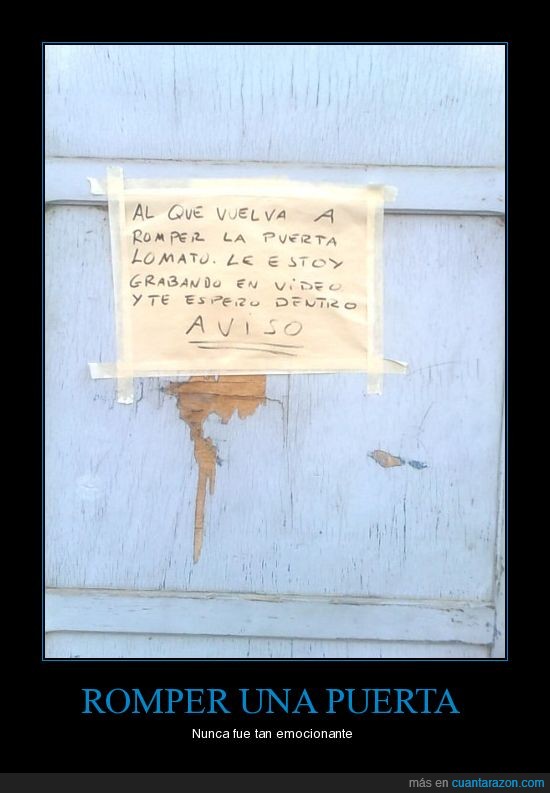 AL QUE VUELVA A
ROMPER LA PUERTA
LOMATO. LE ESTOY
GRABANDO EN VIDEO
Y TE ESPERO DENTRO
AVISO
ROMPER UNA PUERTA
Nunca fue tan emocionante
más en cuantarazon.com